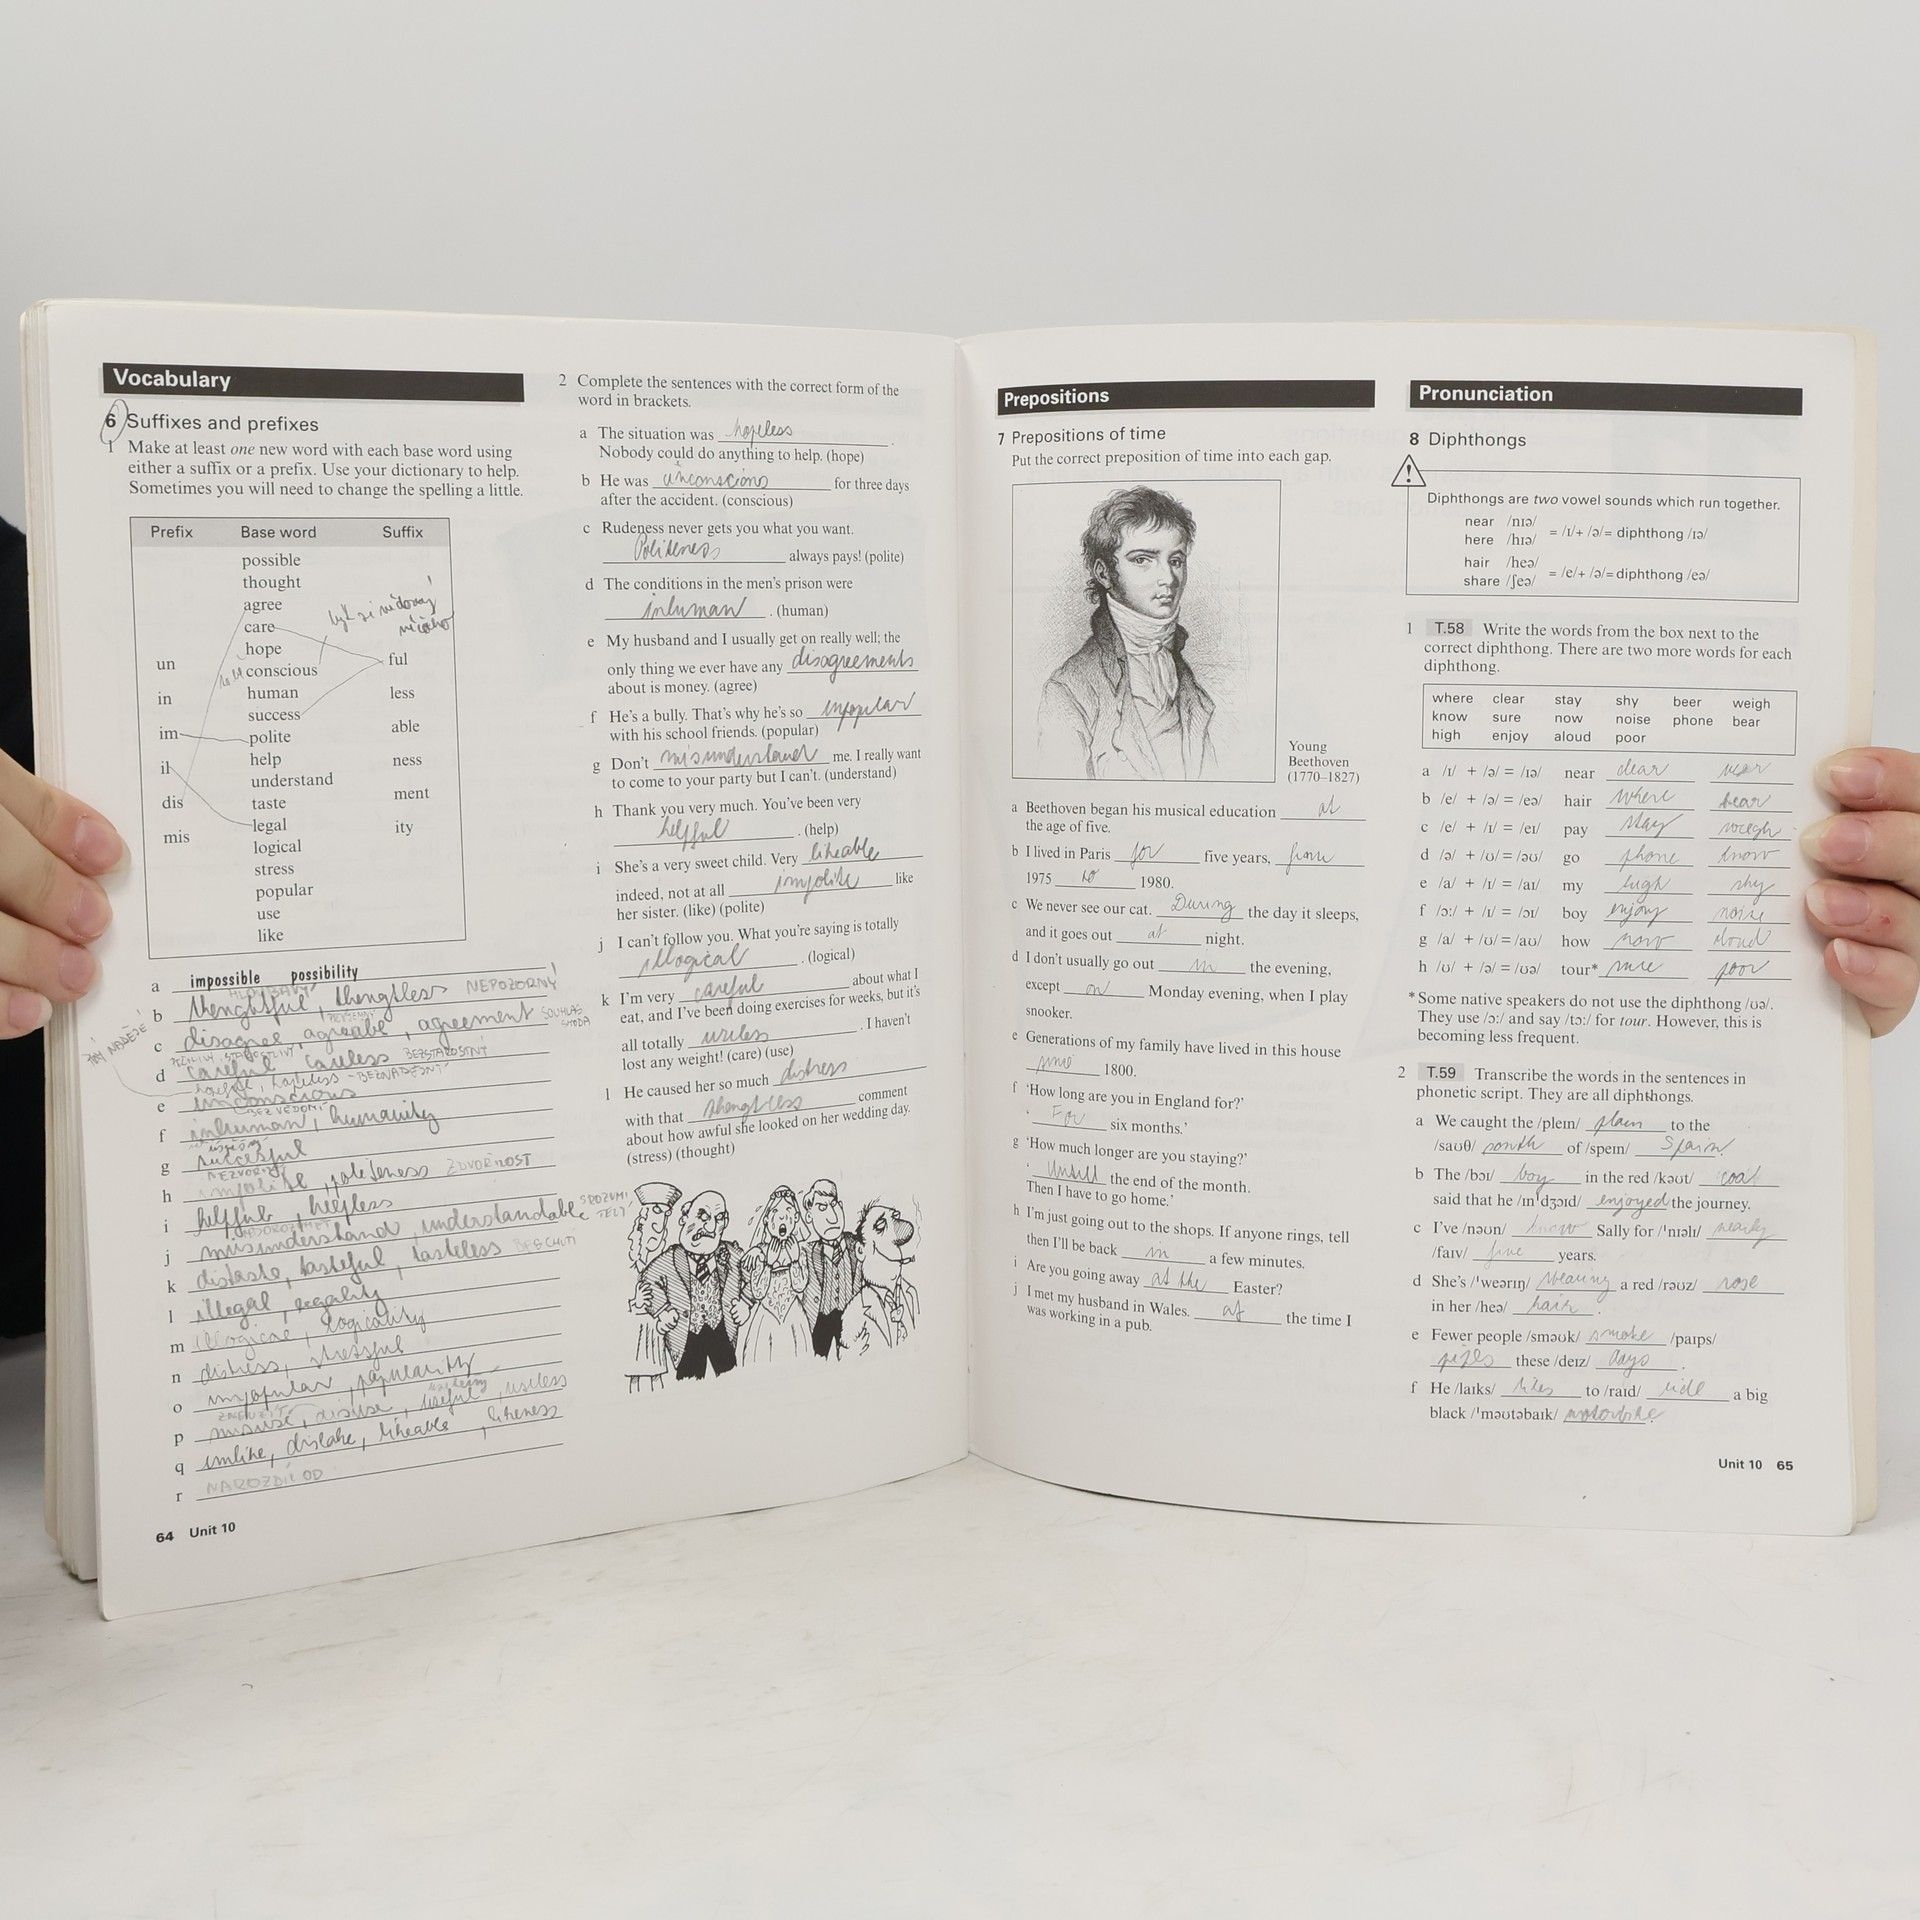 Vocabulary
6 Suffixes and prefixes
1 Make at least one new word with each base word using
either a suffix or a prefix. Use your dictionary to help.
Sometimes you will need to change the spelling a little.
Prefix Base word Suffix
possible
thought
agree
care
hope
un conscious ful
in human less
success
im polite able
il help ness
understand
dis taste ment
mis legal ity
logical
stress
popular
use
like
a impossible possibility
b NEPOZORNÝ
c disagree, agreement
d careful, careless BEZSTAROSTNÝ
hopeless - BEZNADĚJNÝ
e
BEZ VĚDOMÍ
f inhuman, humanity
g
h politeness ZDVOŘILOST
i helpful, helpless
j misunderstand, understandable
k distaste, tasteful, tasteless
l illegal, legality
m logicality
n distress, stressful
o popularity
p misuse, disuse, useful, useless
q unlike, dislike, likeable, likeness
r NAROZDÍL OD
64 Unit 10
2 Complete the sentences with the correct form of the
word in brackets.
a The situation was hopeless .
Nobody could do anything to help. (hope)
b He was unconscious for three days
after the accident. (conscious)
c Rudeness never gets you what you want.
Politeness always pays! (polite)
d The conditions in the men's prison were
inhuman . (human)
e My husband and I usually get on really well; the
only thing we ever have any disagreements
about is money. (agree)
f He's a bully. That's why he's so
with his school friends. (popular)
g Don't misunderstand me. I really want
to come to your party but I can't. (understand)
h Thank you very much. You've been very
helpful . (help)
i She's a very sweet child. Very likeable
indeed, not at all impolite like
her sister. (like) (polite)
j I can't follow you. What you're saying is totally
illogical . (logical)
k I'm very careful about what I
eat, and I've been doing exercises for weeks, but it's
all totally useless . I haven't
lost any weight! (care) (use)
l He caused her so much distress
with that comment
about how awful she looked on her wedding day.
(stress) (thought)
Prepositions
7 Prepositions of time
Put the correct preposition of time into each gap.
Young
Beethoven
(1770–1827)
a Beethoven began his musical education at
the age of five.
b I lived in Paris for five years, from
1975 to 1980.
c We never see our cat. During the day it sleeps,
and it goes out at night.
d I don't usually go out in the evening,
except on Monday evening, when I play
snooker.
e Generations of my family have lived in this house
since 1800.
f 'How long are you in England for?'
' For six months.'
g 'How much longer are you staying?'
' Untill the end of the month.
Then I have to go home.'
h I'm just going out to the shops. If anyone rings, tell
then I'll be back in a few minutes.
i Are you going away at the Easter?
j I met my husband in Wales. at the time I
was working in a pub.
Pronunciation
8 Diphthongs
Diphthongs are two vowel sounds which run together.
near /nɪə/
here /hɪə/ = /ɪ/+ /ə/= diphthong /ɪə/
hair /heə/
share /ʃeə/ = /e/+ /ə/= diphthong /eə/
1 T.58 Write the words from the box next to the
correct diphthong. There are two more words for each
diphthong.
where clear stay shy beer weigh
know sure now noise phone bear
high enjoy aloud poor
a /ɪ/ + /ə/ = /ɪə/ near clear
b /e/ + /ə/ = /eə/ hair where bear
c /e/ + /ɪ/ = /eɪ/ pay stay weigh
d /ə/ + /ʊ/ = /əʊ/ go phone know
e /a/ + /ɪ/ = /aɪ/ my high shy
f /ɔː/ + /ɪ/ = /ɔɪ/ boy enjoy noise
g /a/ + /ʊ/ = /aʊ/ how now aloud
h /ʊ/ + /ə/ = /ʊə/ tour* sure poor
* Some native speakers do not use the diphthong /ʊə/.
They use /ɔː/ and say /tɔː/ for tour. However, this is
becoming less frequent.
2 T.59 Transcribe the words in the sentences in
phonetic script. They are all diphthongs.
a We caught the /pleɪn/ plain to the
/saʊθ/ south of /speɪn/ Spain.
b The /bɔɪ/ boy in the red /kəʊt/ coat
said that he /ɪn'dʒɔɪd/ enjoyed the journey.
c I've /nəʊn/ know Sally for /'nɪəlɪ/ nearly
/faɪv/ five years.
d She's /'weərɪŋ/ wearing a red /rəʊz/ rose
in her /heə/ hair .
e Fewer people /sməʊk/ smoke /paɪps/
pipes these /deɪz/ days .
f He /laɪks/ likes to /raɪd/ ride a big
black /'məʊtəbaɪk/ motorbike.
Unit 10 65